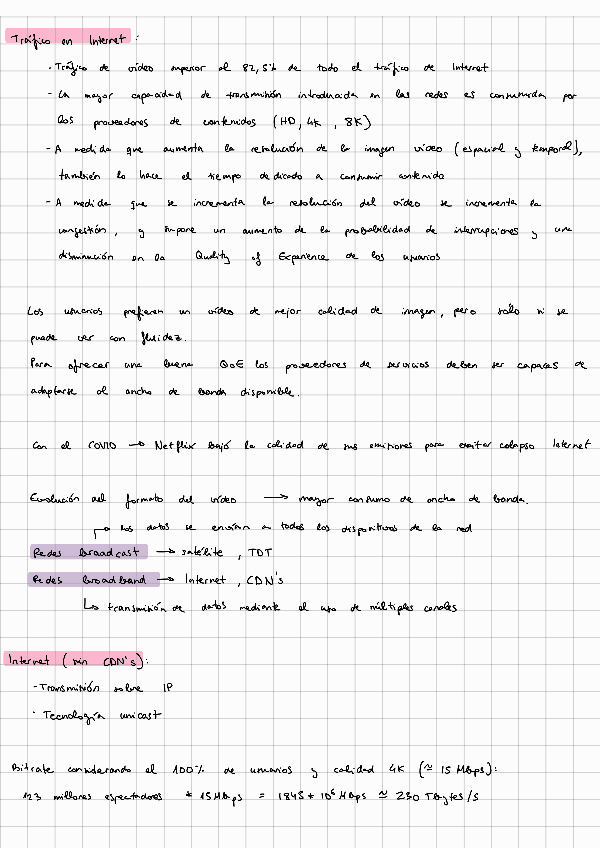 Tráfico en Internet :
· Tráfico de vídeo superior al 82,5% de todo el tráfico de Internet
- La mayor capacidad de transmisión introducida en las redes es consumida por
los proveedores de contenidos (HD, 4K, 8K)
- A medida que aumenta la resolución de la imagen vídeo (espacial y temporal),
también lo hace el tiempo dedicado a consumir contenido
- A medida que se incrementa la resolución del vídeo se incrementa la
congestión, y supone un aumento de la probabilidad de interrupciones y una
disminución en la Quality of Experience de los usuarios
Los usuarios prefieren un vídeo de mejor calidad de imagen, pero sólo si se
puede ver con fluidez.
Para ofrecer una buena QoE los proveedores de servicios deben ser capaces de
adaptarse al ancho de banda disponible.
Con el COVID → Netflix bajó la calidad de sus emisiones para evitar colapso Internet
Evolución del formato del vídeo → mayor consumo de ancho de banda.
los datos se envían a todos los dispositivos de la red
Redes broadcast → satélite, TDT
Redes broadband → Internet, CDN's
↳ transmisión de datos mediante el uso de múltiples canales
Internet (sin CDN's):
- Transmisión sobre IP
· Tecnología unicast
Bitrate considerando el 100% de usuarios y calidad 4K (≃ 15 Mbps):
123 millones espectadores * 15 Mbps = 1845 * 10⁶ Mbps ≃ 230 TBytes/s